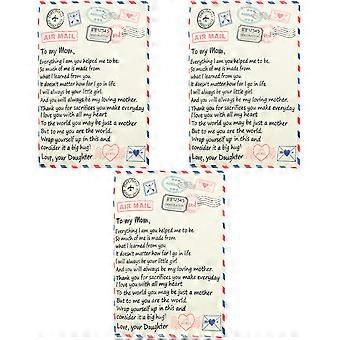 AIR MAIL
To my Mom,
Everything I am you helped me to be.
So much of me is made from
what I learned from you.
It doesn't matter how far I go in life.
I will always be your little girl.
And you will always be my loving mother.
Thank you for sacrifices you make everyday
I love you with all my heart
To the world you may be just a mother
But to me you are the world.
Wrap yourself up in this and
consider it a big hug!
Love, your Daughter
AIR MAIL
To my Mom,
Everything I am you helped me to be.
So much of me is made from
what I learned from you.
It doesn't matter how far I go in life.
I will always be your little girl.
And you will always be my loving mother.
Thank you for sacrifices you make everyday
I love you with all my heart
To the world you may be just a mother
But to me you are the world.
Wrap yourself up in this and
consider it a big hug!
Love, your Daughter
AIR MAIL
To my Mom,
Everything I am you helped me to be.
So much of me is made from
what I learned from you.
It doesn't matter how far I go in life.
I will always be your little girl
And you will always be my loving mother.
Thank you for sacrifices you make everyday
I love you with all my heart
To the world you may be just a mother
But to me you are the world.
Wrap yourself up in this and
consider it a big hug!
Love, your Daughter